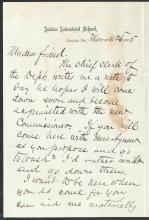 Indian Industrial School,
Carlisle, Pa. March 26
My dear friend.
The chief clerk of
the Dept. writes me a note to
day he hopes I will come
down soon and become
acquainted with the new
Commissioner. If you will
come here with
as you propose and go
I'd rather wait
and go down then.
I want to be here when
you do come for you
can aid me materially